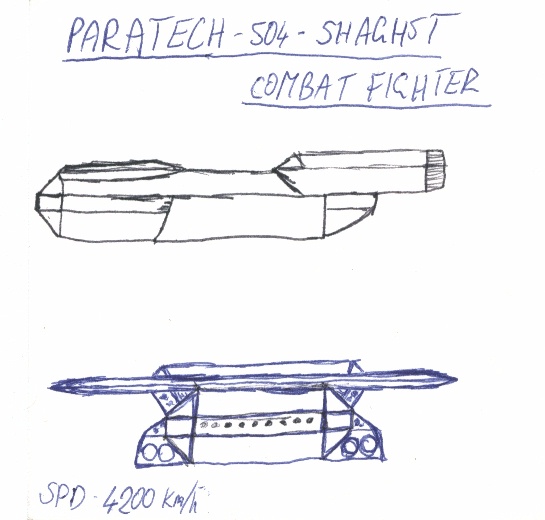 PARATECH-504-SHAGHST
COMBAT FIGHTER
SPD-4200 Km/h